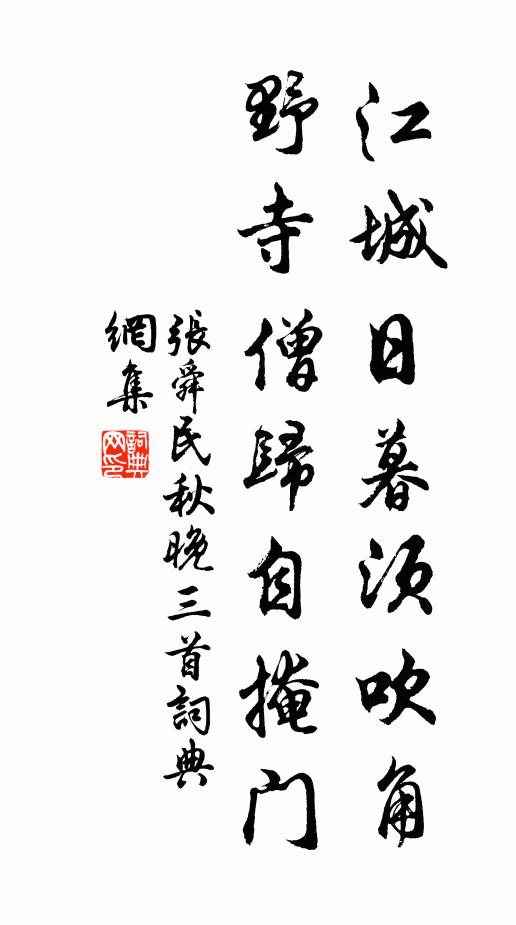 江城日暮須吹角
野寺僧歸自掩门
張舜民秋晚三首詞典
網集
詞典
网印